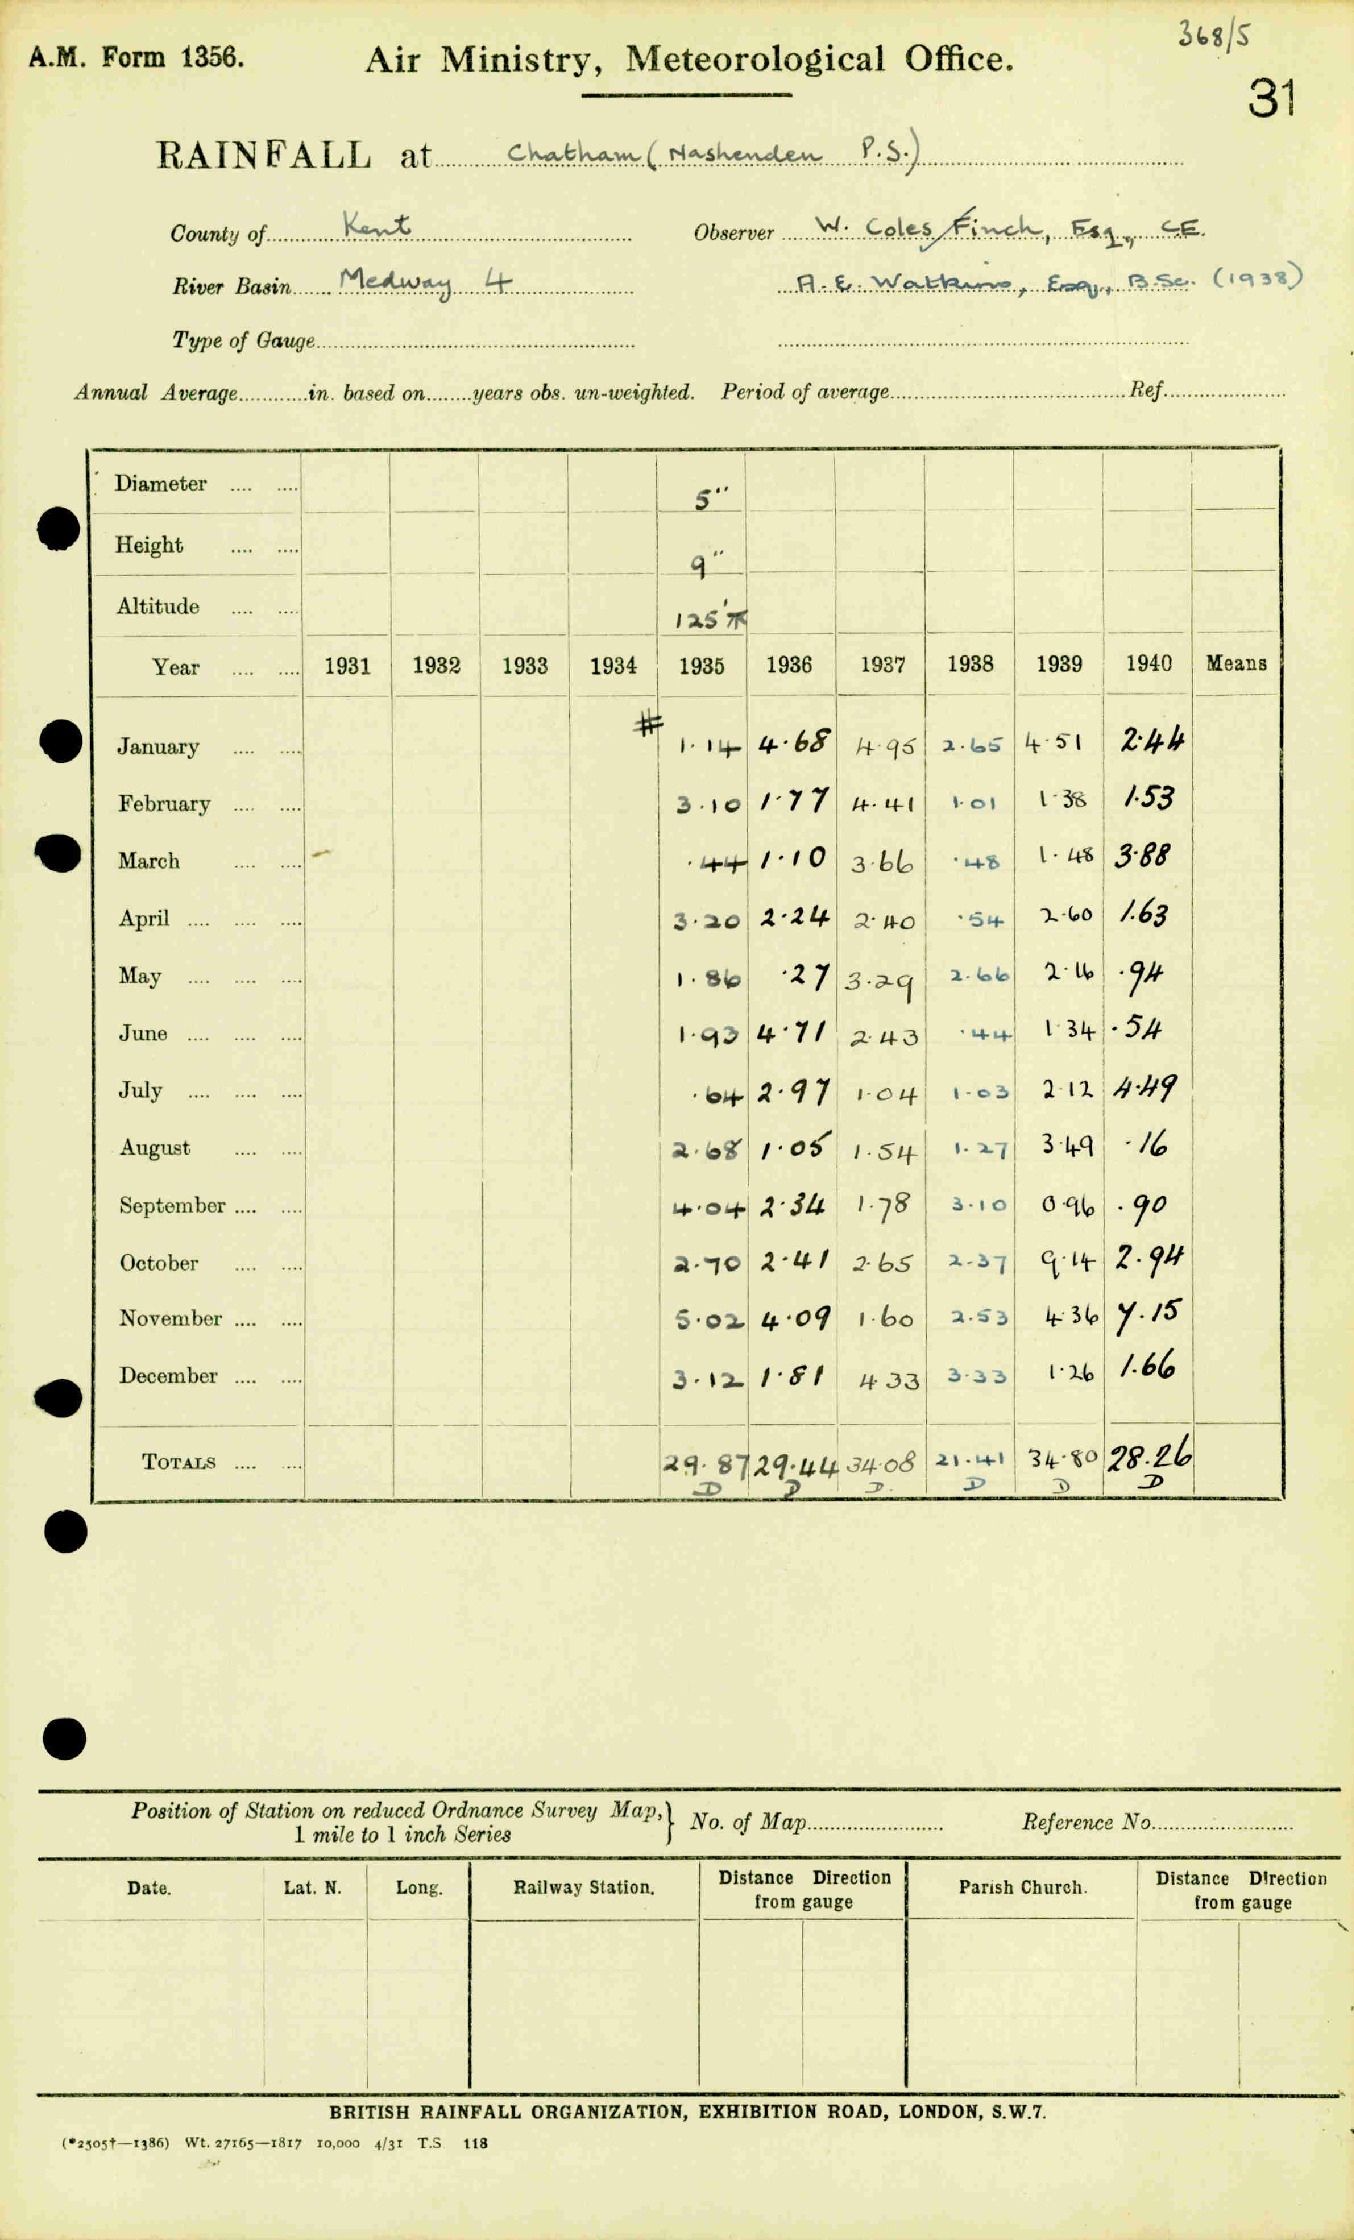 368/5
A.M. Form 1356. Air Ministry, Meteorological Office.
31
RAINFALL at Chatham (Nashenden P.S.)
County of Kent Observer W. Coles Finch, Esq., C.E.
River Basin Medway 4 A. E. Watkins, Esq., B.Sc. (1938)
Type of Gauge
Annual Average in. based on years obs. un-weighted. Period of average Ref.
Diameter 5"
Height 9"
Altitude 125'
Year 1931 1932 1933 1934 1935 1936 1937 1938 1939 1940 Means
January # 1.14 4.68 4.95 2.65 4.51 2.44
February 3.10 1.77 4.41 1.01 1.38 1.53
March .44 1.10 3.66 .48 1.48 3.88
April 3.20 2.24 2.40 .54 2.60 1.63
May 1.86 .27 3.29 2.66 2.16 .94
June 1.93 4.71 2.43 .44 1.34 .54
July .64 2.97 1.04 1.03 2.12 4.49
August 2.68 1.05 1.54 1.27 3.49 .16
September 4.04 2.34 1.78 3.10 0.96 .90
October 2.70 2.41 2.65 2.37 9.14 2.94
November 5.02 4.09 1.60 2.53 4.36 7.15
December 3.12 1.81 4.33 3.33 1.26 1.66
TOTALS 29.87 29.44 34.08 21.41 34.80 28.26
D D D. D D D
Position of Station on reduced Ordnance Survey Map, } No. of Map Reference No.
1 mile to 1 inch Series
Date. Lat. N. Long. Railway Station. Distance Direction from gauge Parish Church. Distance Direction from gauge
BRITISH RAINFALL ORGANIZATION, EXHIBITION ROAD, LONDON, S.W.7.
(*2505†—1386) Wt. 27165—1817 10,000 4/31 T.S. 118